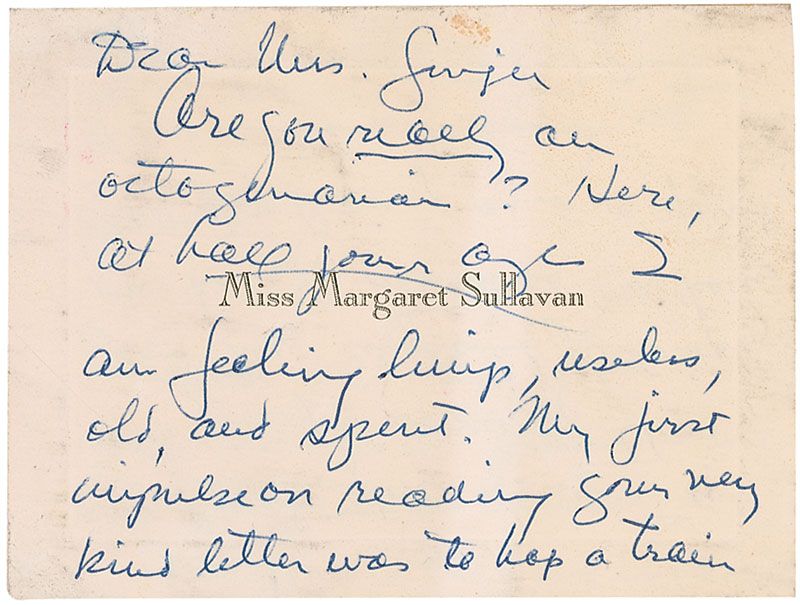 Dear Mrs. Singer
Are you really an
octogenarian? Here,
at half your age I
Miss Margaret Sullavan
am feeling limp, useless,
old, and spent. My first
impulse on reading your very
kind letter was to hop a train